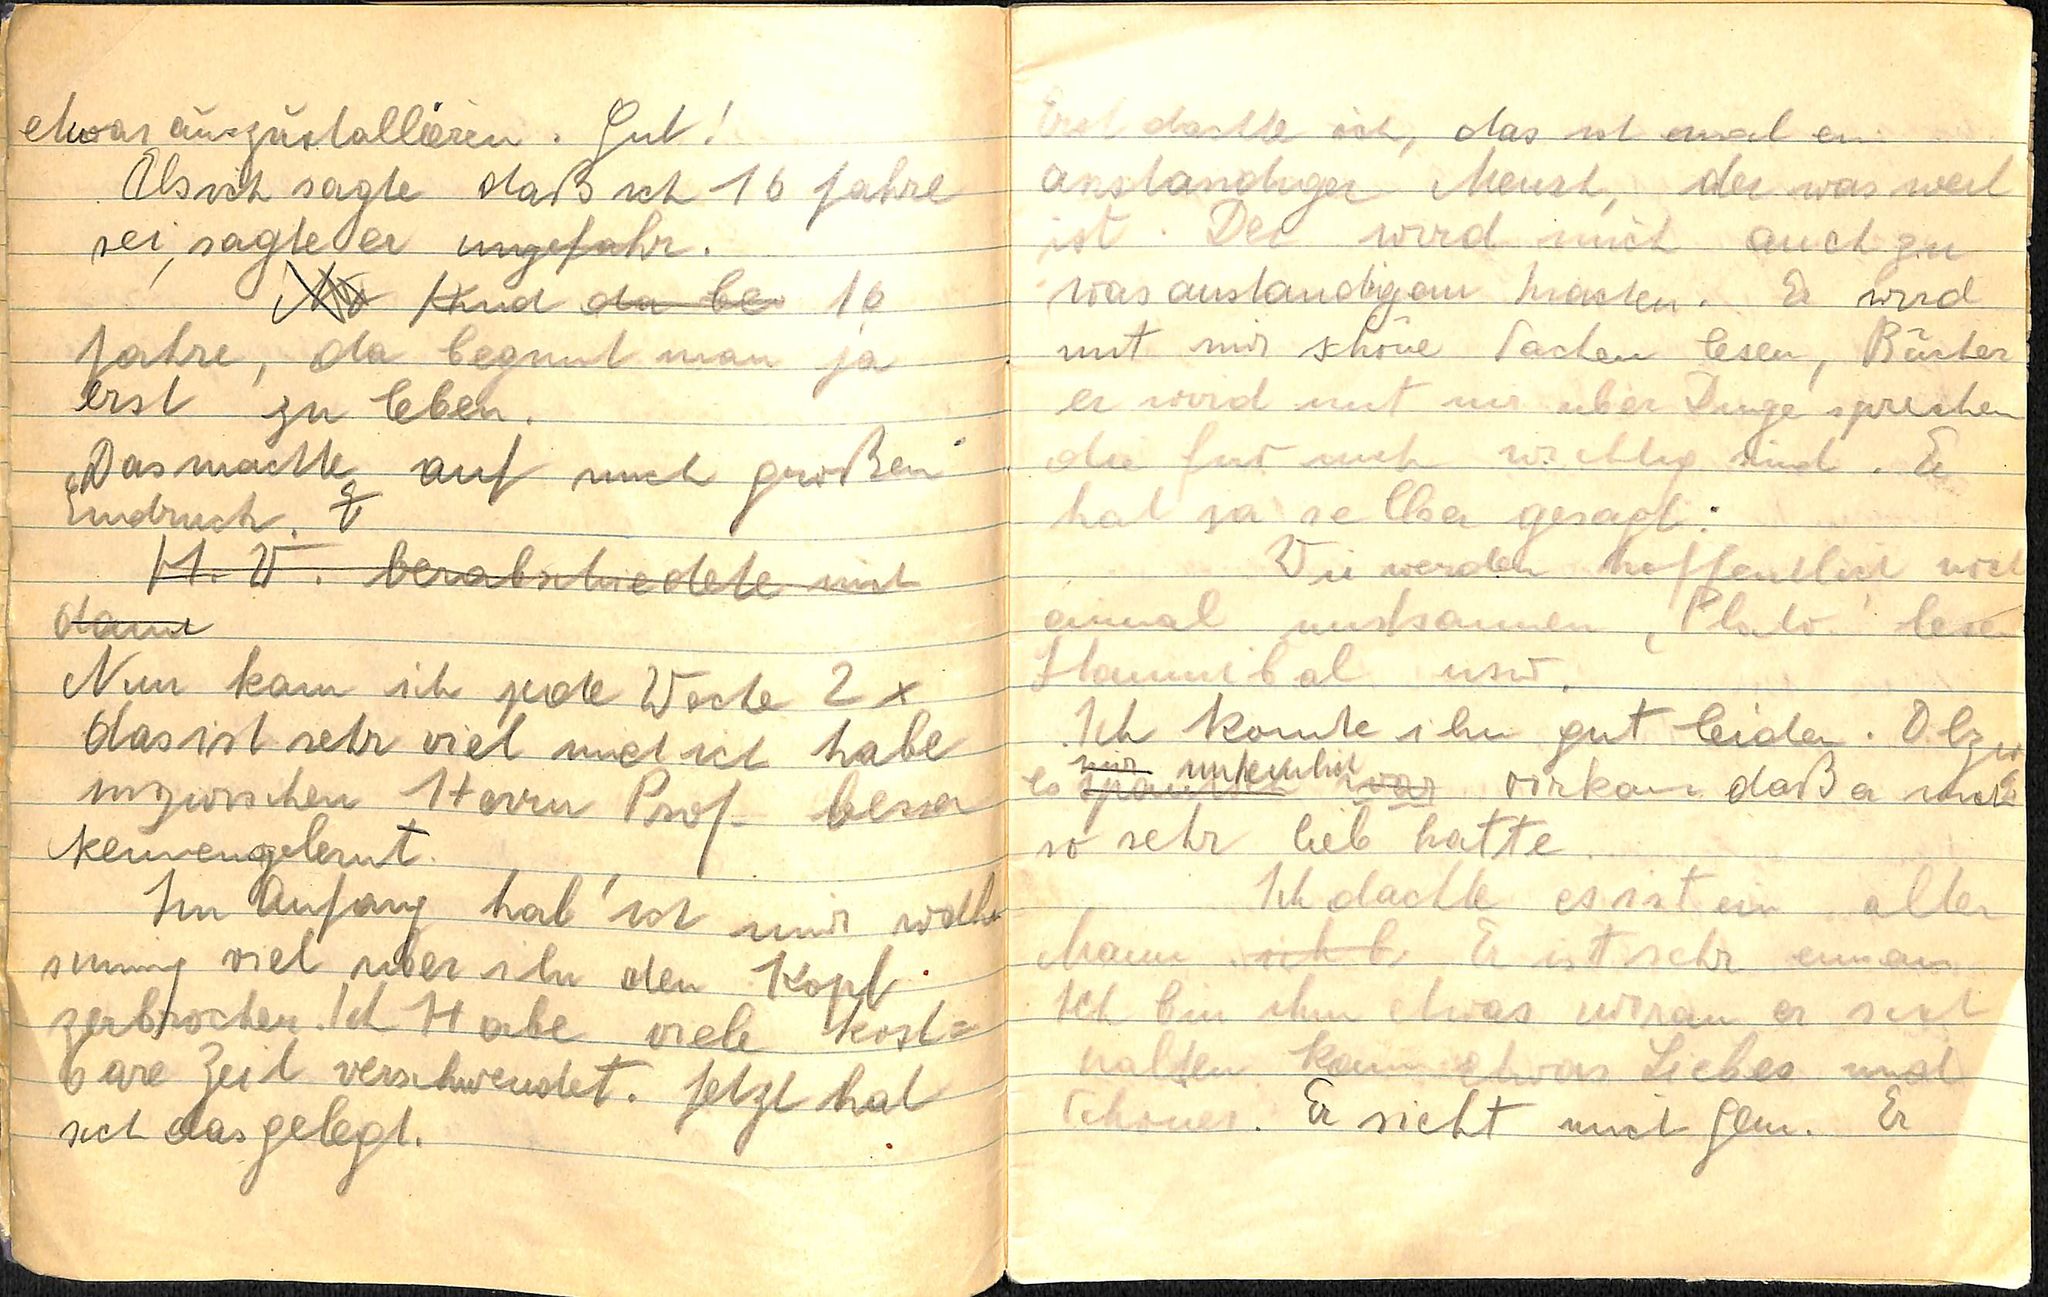 etwas auszustallieren. Gut!
Als ich sagte daß ich 16 Jahre
sei, sagte er ungefähr.
Kind da bei 16
Jahre, da beginnt man ja
erst zu leben.
Das machte auf mich großen
Eindruck.
H. V. verabschiedete mich
dann
Nun kam ich jede Woche 2 x
das ist sehr viel und ich habe
inzwischen Herrn Prof. besser
kennengelernt.
Im Anfang hab' ich mir wahn
sinnig viel über ihn den Kopf
zerbrochen. Ich Habe viele kost=
bare Zeit verschwendet. Jetzt hat
sich das gelegt.
Erst dachte ich, das ist mal ein
anständiger Mensch, der was weit
ist. Der wird mich auch zu
was anständigem machen. Er wird
mit mir schöne Sachen lesen, Bücher
er wird mit mir über Dinge sprechen
die für mich wichtig sind. Er
hat ja selber gesagt:
Wir werden hoffentlich noch
einmal zusammen, Plato lesen
Hannibal usw.
Ich konnte ihn gut leiden. Obzw
mir
es spanisch war vorkam daß er mich
so sehr lieb hatte.
Ich dachte es ist ein alter
Mann. ich b Er ist sehr einsam
Ich bin ihm etwas woran er sich
halten kann etwas Liebes und
Schönes. Er sieht mich gern. Er